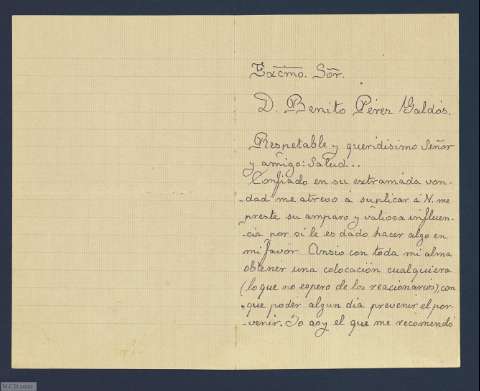 Excmo. Sor.
D. Benito Pérez Galdós.
Respetable y queridisimo Señor
y amigo: Salud...
Confiado en su extramada von-
dad me atrevo á suplicar á V. me
preste su amparo y valiosa influen-
cia por si le es dado hacer algo en
mi favor. Ansio con toda mi alma
obtener una colocación cualquiera
(lo que no espero de los reacionarios), con
que poder algun dia prevenir el por-
venir. Yo soy el que me recomendó